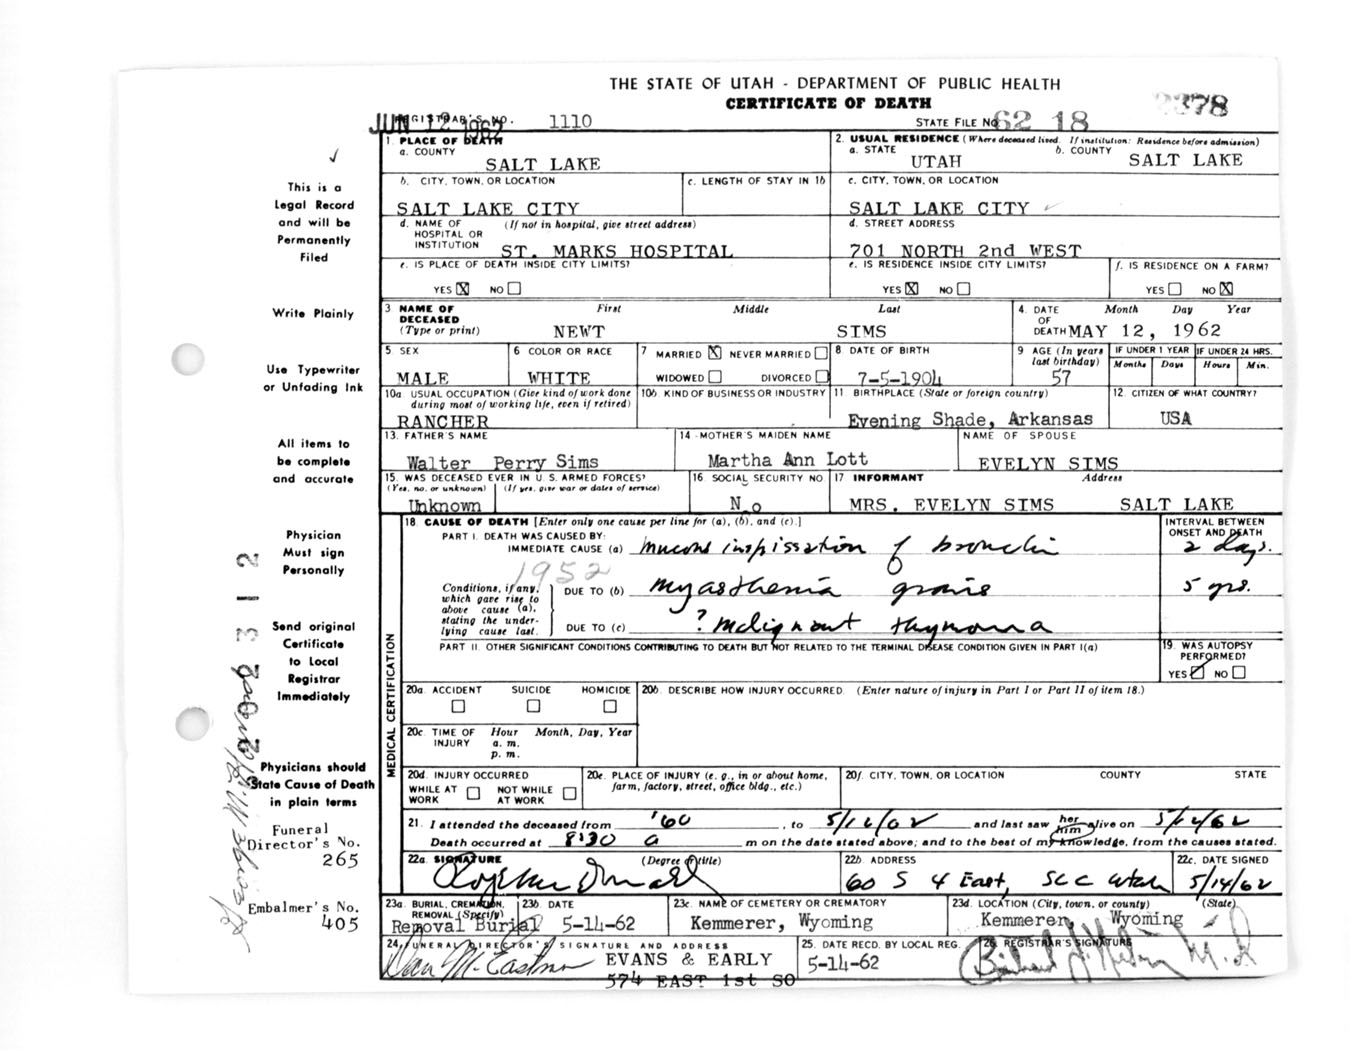 THE STATE OF UTAH - DEPARTMENT OF PUBLIC HEALTH
CERTIFICATE OF DEATH
2378
JUN 12 1962
REGISTRAR'S NO. 1110
STATE FILE NO. 62 18
1. PLACE OF DEATH
a. COUNTY
SALT LAKE
2. USUAL RESIDENCE (Where deceased lived. If institution: Residence before admission)
a. STATE UTAH b. COUNTY SALT LAKE
b. CITY, TOWN, OR LOCATION
SALT LAKE CITY
c. LENGTH OF STAY IN 1b
c. CITY, TOWN, OR LOCATION
SALT LAKE CITY
d. NAME OF HOSPITAL OR INSTITUTION (If not in hospital, give street address)
ST. MARKS HOSPITAL
d. STREET ADDRESS
701 NORTH 2nd WEST
e. IS PLACE OF DEATH INSIDE CITY LIMITS?
YES X NO
e. IS RESIDENCE INSIDE CITY LIMITS?
YES X NO
f. IS RESIDENCE ON A FARM?
YES NO X
3 NAME OF DECEASED (Type or print) First Middle Last
NEWT SIMS
4. DATE OF DEATH Month Day Year
MAY 12, 1962
5. SEX
MALE
6 COLOR OR RACE
WHITE
7 MARRIED X NEVER MARRIED
WIDOWED DIVORCED
8 DATE OF BIRTH
7-5-1904
9 AGE (In years last birthday)
57
IF UNDER 1 YEAR IF UNDER 24 HRS.
Months Days Hours Min.
10a. USUAL OCCUPATION (Give kind of work done during most of working life, even if retired)
RANCHER
10b. KIND OF BUSINESS OR INDUSTRY
11 BIRTHPLACE (State or foreign country)
Evening Shade, Arkansas
12. CITIZEN OF WHAT COUNTRY?
USA
13. FATHER'S NAME
Walter Perry Sims
14 MOTHER'S MAIDEN NAME
Martha Ann Lott
NAME OF SPOUSE
EVELYN SIMS
15. WAS DECEASED EVER IN U. S. ARMED FORCES?
(Yes, no, or unknown) (If yes, give war or dates of service)
Unknown
16 SOCIAL SECURITY NO
No
17 INFORMANT Address
MRS. EVELYN SIMS SALT LAKE
18. CAUSE OF DEATH [Enter only one cause per line for (a), (b), and (c).]
INTERVAL BETWEEN ONSET AND DEATH
PART I. DEATH WAS CAUSED BY:
IMMEDIATE CAUSE (a) mucous inspissation of bronchi 2 days.
1952
Conditions, if any, which gave rise to above cause (a), stating the underlying cause last.
DUE TO (b) myasthenia gravis 5 yrs.
DUE TO (c) ? malignant thymoma
PART II. OTHER SIGNIFICANT CONDITIONS CONTRIBUTING TO DEATH BUT NOT RELATED TO THE TERMINAL DISEASE CONDITION GIVEN IN PART I(a)
19. WAS AUTOPSY PERFORMED?
YES NO
MEDICAL CERTIFICATION
20a. ACCIDENT SUICIDE HOMICIDE
20b. DESCRIBE HOW INJURY OCCURRED. (Enter nature of injury in Part I or Part II of item 18.)
20c. TIME OF INJURY Hour Month, Day, Year
a. m.
p. m.
20d. INJURY OCCURRED
WHILE AT WORK NOT WHILE AT WORK
20e. PLACE OF INJURY (e. g., in or about home, farm, factory, street, office bldg., etc.)
20f. CITY, TOWN, OR LOCATION COUNTY STATE
21. I attended the deceased from '60, to 5/12/62 and last saw her him alive on 5/12/62
Death occurred at 8:30 a m on the date stated above; and to the best of my knowledge, from the causes stated.
22a. SIGNATURE (Degree or title)
22b. ADDRESS
60 S 4 East, SLC Utah
22c. DATE SIGNED
5/14/62
23a. BURIAL, CREMATION, REMOVAL (Specify)
Removal Burial
23b. DATE
5-14-62
23c. NAME OF CEMETERY OR CREMATORY
Kemmerer, Wyoming
23d. LOCATION (City, town, or county) (State)
Kemmerer, Wyoming
24. FUNERAL DIRECTOR'S SIGNATURE AND ADDRESS
Dan M. Eastman EVANS & EARLY
574 EAST 1st SO
25. DATE RECD. BY LOCAL REG.
5-14-62
26. REGISTRAR'S SIGNATURE
This is a
Legal Record
and will be
Permanently
Filed
Write Plainly
Use Typewriter
or Unfading Ink
All items to
be complete
and accurate
Physician
Must sign
Personally
Send original
Certificate
to Local
Registrar
Immediately
Physicians should
State Cause of Death
in plain terms
Funeral
Director's No.
265
Embalmer's No.
405